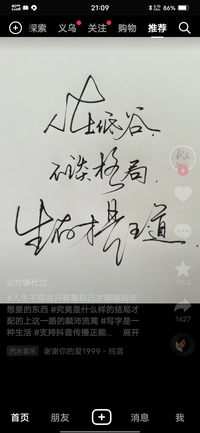 21:09
86%
探索 义乌 关注 购物 推荐
人生低谷.
不谈格局.
生存才是王道.
1427
#人生不容易只有靠自己才能得到你
想要的东西 #究竟是什么样的结局才
配的上这一路的颠沛流离 #写字是一
种生活 #支持抖音传播正能... 展开
汽水音乐 谢谢你的爱1999 - 纯音
首页 朋友 消息 我